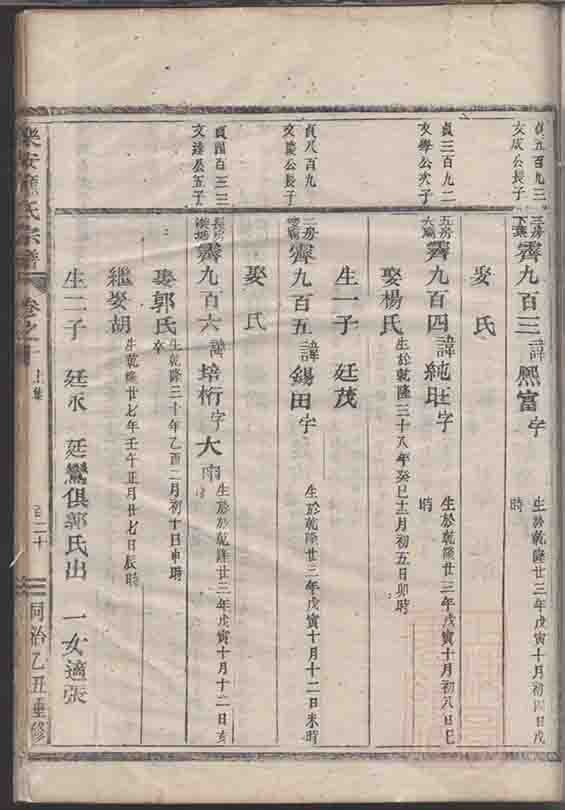 貞五百九三
文成公長子
三房
霽九百三諱熙富字
生於乾隆廿三年戊寅十月初四日戌
時
娶 氏
貞三百九二
文學公次子
五房
霽九百四諱純旺字
生於乾隆廿三年戊寅十月初八日巳
時
娶楊氏生於乾隆三十八年癸巳十二月初五日卯時
生一子 廷茂
貞八百九
公長子
三房
霽九百五諱錫田字
生於乾隆廿三年戊寅十月十二日未時
娶 氏
貞四百三三
文達公五子
霽九百六諱培桁字大雨
生於乾隆廿三年戊寅十月十二日亥
娶郭氏生乾隆三十年乙酉二月初十日申時
卒
繼娶胡生乾隆廿七年壬午正月廿七日辰時
生二子 廷永 廷鸞俱郭氏出 一女適張
樂安 氏宗譜
卷之
上集
百二十
同治乙丑重修